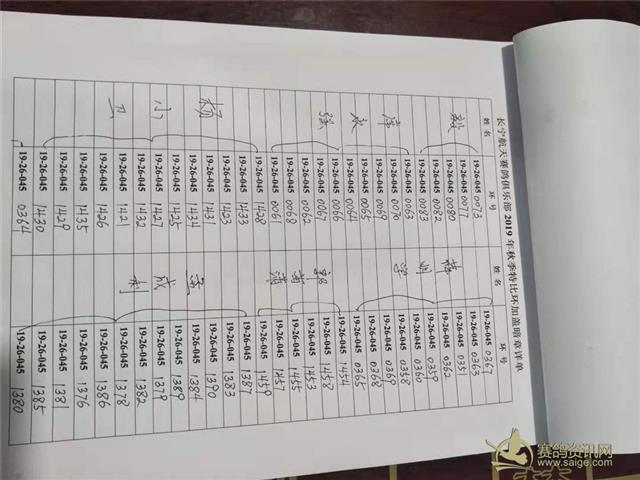 长宁航天赛鸽俱乐部 2019 年秋季特比环加盖暗章详单
姓名 环号 姓名 环号
19-26-045 0073 19-26-045 0367
19-26-045 0077 19-26-045 0363
毅 19-26-045 0080 19-26-045 0351
19-26-045 0082 19-26-045 0362
19-26-045 0083 明 19-26-045 0359
19-26-045 0063 19-26-045 0360
19-26-045 0070 学 19-26-045 0358
19-26-045 0069 19-26-045 0369
19-26-045 0065 19-26-045 0368
19-26-045 0064 19-26-045 0365
19-26-045 0066 19-26-045 1454
强 19-26-045 0067 郭 19-26-045 1458
19-26-045 0062 19-26-045 1453
19-26-045 0068 19-26-045 1455
19-26-045 0061 19-26-045 1457
19-26-045 1428 19-26-045 1459
19-26-045 1433 19-26-045 1387
杨 19-26-045 1423 19-26-045 1383
19-26-045 1431 19-26-045 1390
19-26-045 1434 19-26-045 1384
小 19-26-045 1425 成 19-26-045 1389
19-26-045 1427 19-26-045 1379
19-26-045 1432 19-26-045 1382
卫 19-26-045 1421 19-26-045 1378
19-26-045 1426 19-26-045 1386
19-26-045 1435 19-26-045 1376
19-26-045 1429 19-26-045 1381
19-26-045 1430 19-26-045 1385
19-26-045 0364 19-26-045 1380
赛鸽资讯网
www.saige.com